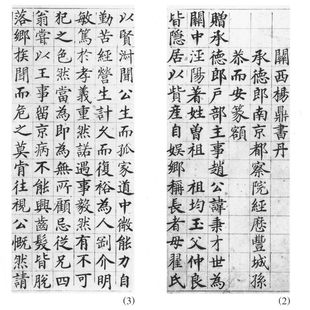 關西楊鼎書丹
承德郎南京都察院經歷豐城孫
恭而安篆額
贈承德郎戶部主事趙公諱秉才世為
關中涇陽著姓曾祖祖均玉父仲良
皆隱居以貲產自娛鄉稱長者母翟氏
(2)
以賢淑聞公生而孤家道中微能力自
勤苦經營生計久而復裕為人剛介明
敏篤於孝義重然諾遇事毅然有不可
犯之色然當為即為無所顧忌從兄四
翁嘗以王事留京病不能興齒髮皆脫
落鄉族聞而危之莫肯往視公慨然請
(3)